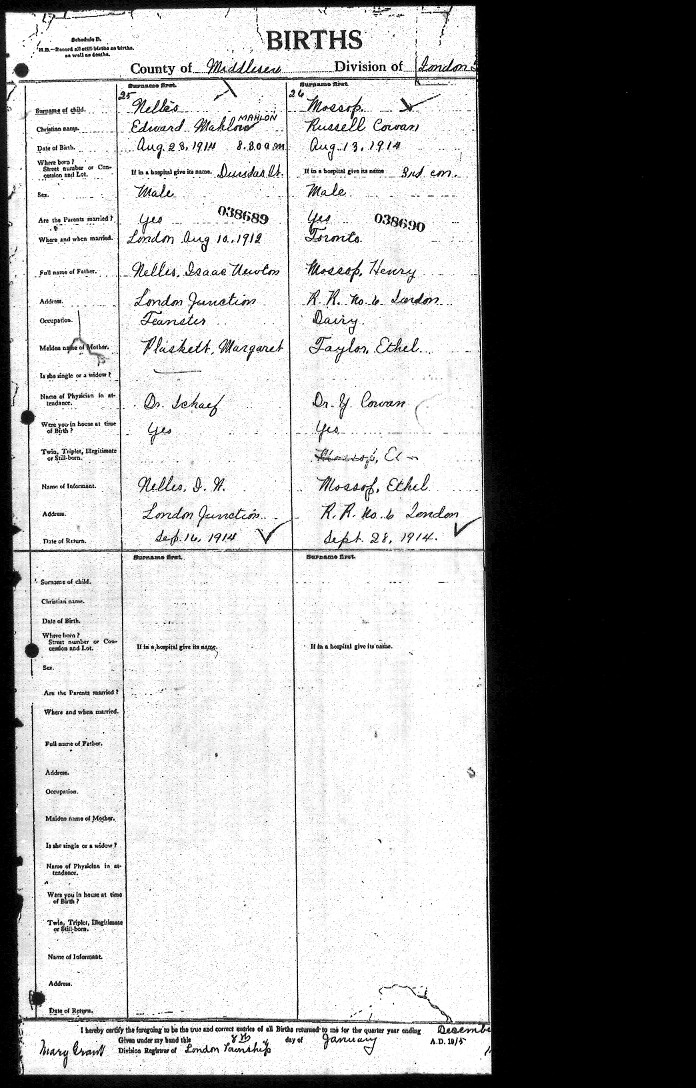 Schedule B.
N.B.—Record all still births as births, as well as deaths.
BIRTHS
County of Middlesex Division of London
Surname first. Surname first.
25 26
Surname of child. Nelles Mossop
MAHLON
Christian name. Edward Mahlon Russell Cowan
Date of Birth. Aug 23, 1914 8.30 a.m. Aug 13, 1914
Where born?
Street number or Concession and Lot. If in a hospital give its name. Dundas St. If in a hospital give its name 3rd con.
Sex. Male Male
038689 038690
Are the Parents married? Yes Yes
Where and when married. London Aug 10, 1912 Toronto
Full name of Father. Nelles, Isaac Newton Mossop, Henry
Address. London Junction R. R. No. 6 London
Occupation. Teamster Dairy
Maiden name of Mother. Pluskett, Margaret Taylor, Ethel
Is she single or a widow?
Name of Physician in attendance. Dr. Schaef Dr. Y Cowan
Were you in house at time of Birth? Yes Yes
Twin, Triplet, Illegitimate or Still-born. Mossop,
Name of Informant. Nelles, I. N. Mossop, Ethel
Address. London Junction R. R. No. 6 London
Date of Return. Sep. 16, 1914 Sept. 28, 1914.
Surname first. Surname first.
Surname of child.
Christian name.
Date of Birth.
Where born?
Street number or Concession and Lot. If in a hospital give its name. If in a hospital give its name.
Sex.
Are the Parents married?
Where and when married.
Full name of Father.
Address.
Occupation.
Maiden name of Mother.
Is she single or a widow?
Name of Physician in attendance.
Were you in house at time of Birth?
Twin, Triplet, Illegitimate or Still-born.
Name of Informant.
Address.
Date of Return.
I hereby certify the foregoing to be the true and correct entries of all Births returned to me for the quarter year ending Decembe
Given under my hand this 8th day of January A.D. 1915
Mary Grant Division Registrar of London Township